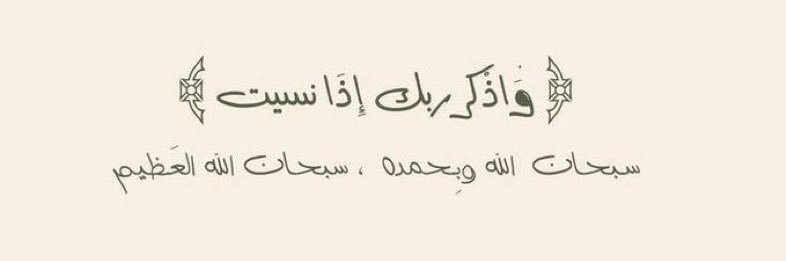 ﴿ وَاذْكر ربك إِذَا نسيت ﴾
سبحان الله وبِحمده ، سبحان الله العَظيم